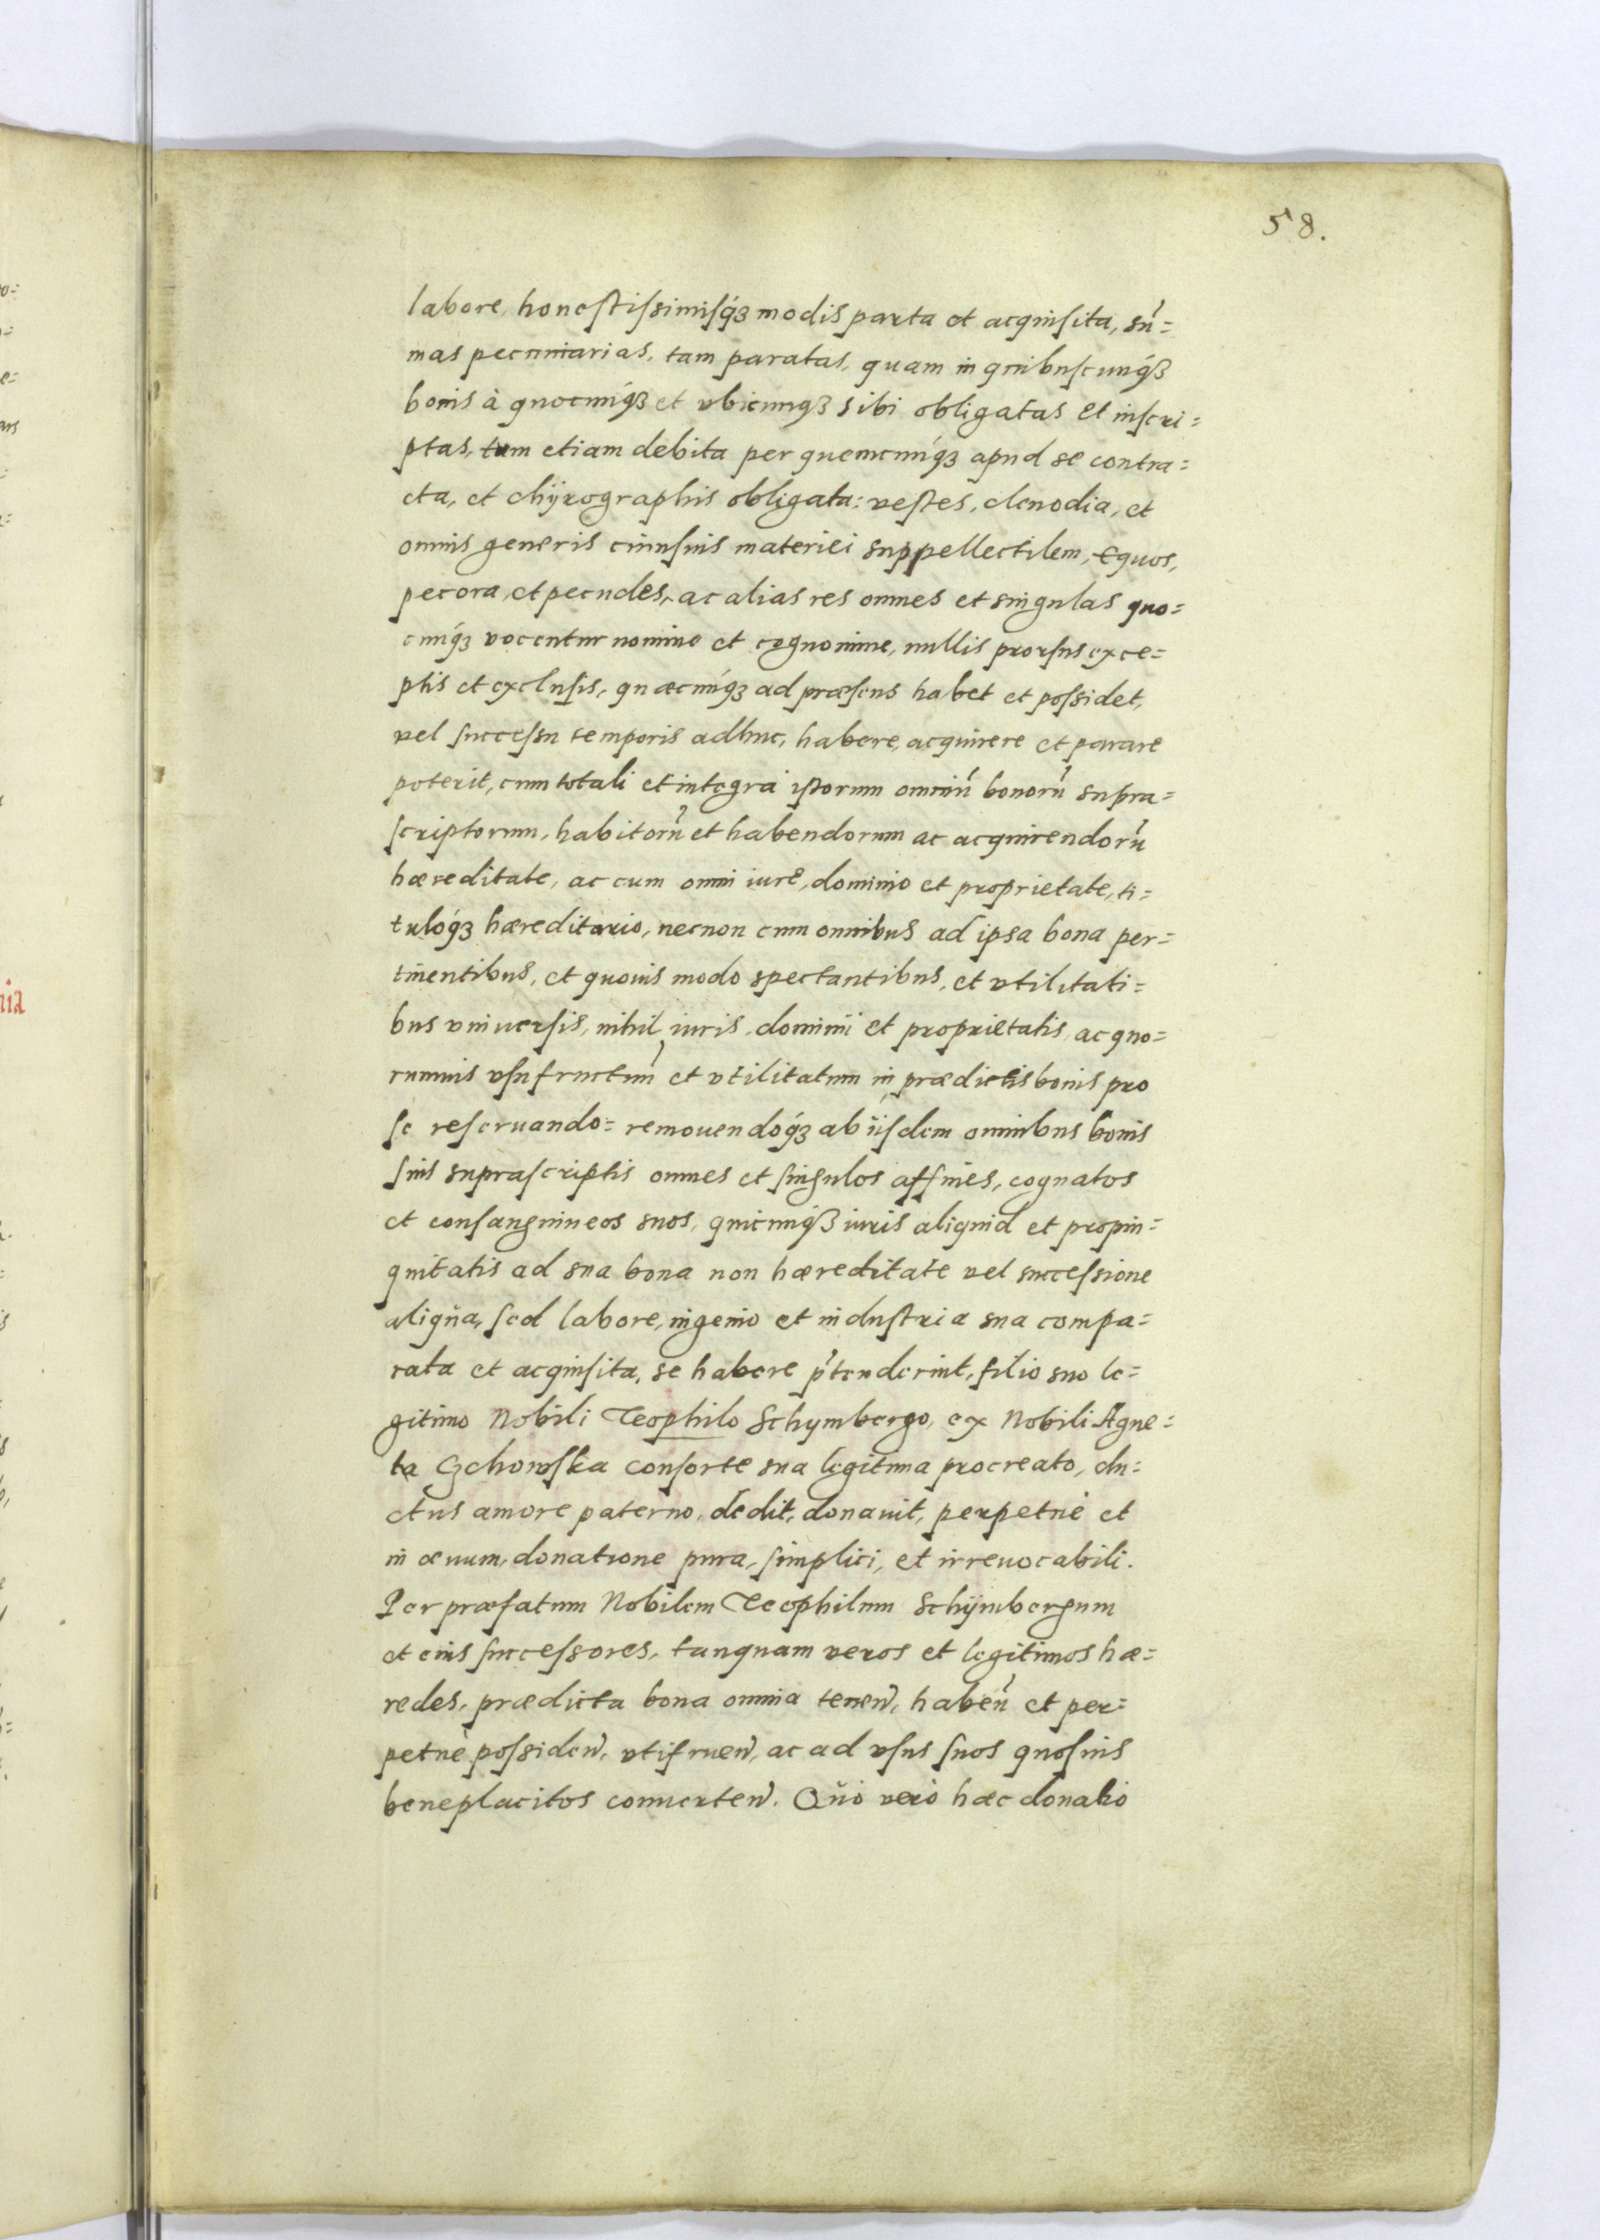 58.
labore, honestissimisq́ꝫ modis parta et acquisita, sũ=
mas pecuniarias, tam paratas, quam in quibuscunq́ꝫ
bonis à quocunq́ꝫ et vbicunqꝫ sibi obligatas et inscri=
ptas, tum etiam debita per quemcunq́ꝫ apud se contra=
cta, et chÿrographis obligata: vestes, clenodia, et
omnis generis cuiusuis materiei suppellectilem, Equos,
pecora, et pecudes, ac alias res omnes et singulas quo=
cunq́ꝫ vocentur nomine et cognomine, nullis prorsus exce=
ptis et exclusis, quæcunq́ꝫ ad præsens habet et possidet,
vel successu temporis adhuc, habere, acquirere et parare
poterit, cum totali et integra istorum omniũ bonorũ supra=
scriptorum, habitorũ et habendorum ac acquirendorũ
hæreditate, ac cum omni iure, dominio et proprietate, ti=
tulóq́ꝫ hæreditario, necnon cum omnibus ad ipsa bona per=
tinentibus, et quouis modo spectantibus, et vtilitati=
bus vniuersis, nihil iuris, dominii et proprietatis, ac quo=
rumuis vsufructuũ et vtilitatum in prædictis bonis pro
se reseruando= remouendóq́ꝫ ab iisdem omnibus bonis
suis suprascriptis omnes et singulos affines, cognatos
et consanguineos suos, quicunq́ꝫ iuris aliquid et propin=
quitatis ad sua bona non hæreditate vel successione
aliqua, sed labore, ingenio et industria sua compa=
rata et acquisita, se habere p̃tenderint, filio suo le=
gitimo Nobili Teophilo Schymbergo, ex Nobili Agne=
ta Czchowska consorte sua legitima procreato, du=
ctus amore paterno, dedit, donauit, perpetuè et
in æuum, donatione pura, simplici, et irreuocabili.
Per præfatum Nobilem Teophilum Schÿmbergum
et eius successores, tanquam veros et legitimos hæ=
redes, prædicta bona omnia teneñ, habeñ et per=
petuè possideñ, vtifrueñ, ac ad vsus suos quosuis
beneplacitos conuerteñ. Quò verò hæc donatio